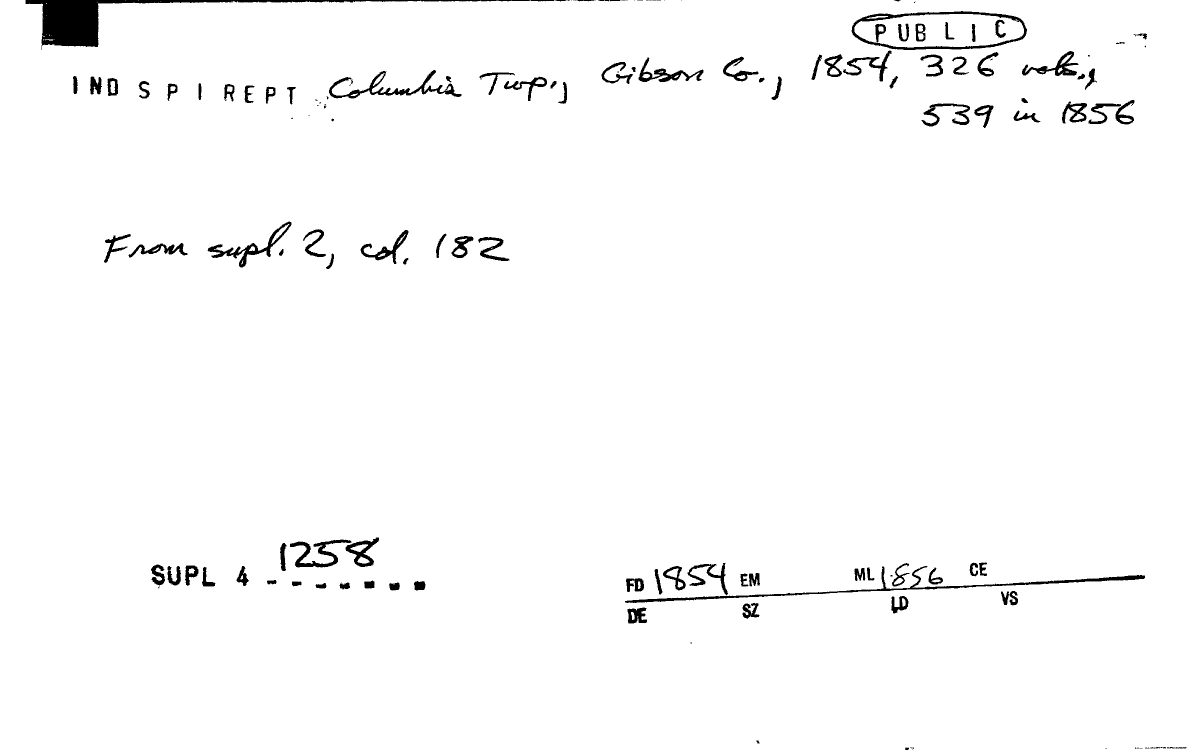 PUBLIC
IND S P I REPT Columbia Twp., Gibson Co., 1854, 326 vols.,
539 in 1856
From supl. 2, col. 182
SUPL 4 1258
FD 1854 EM ML 1856 CE
DE SZ LD VS